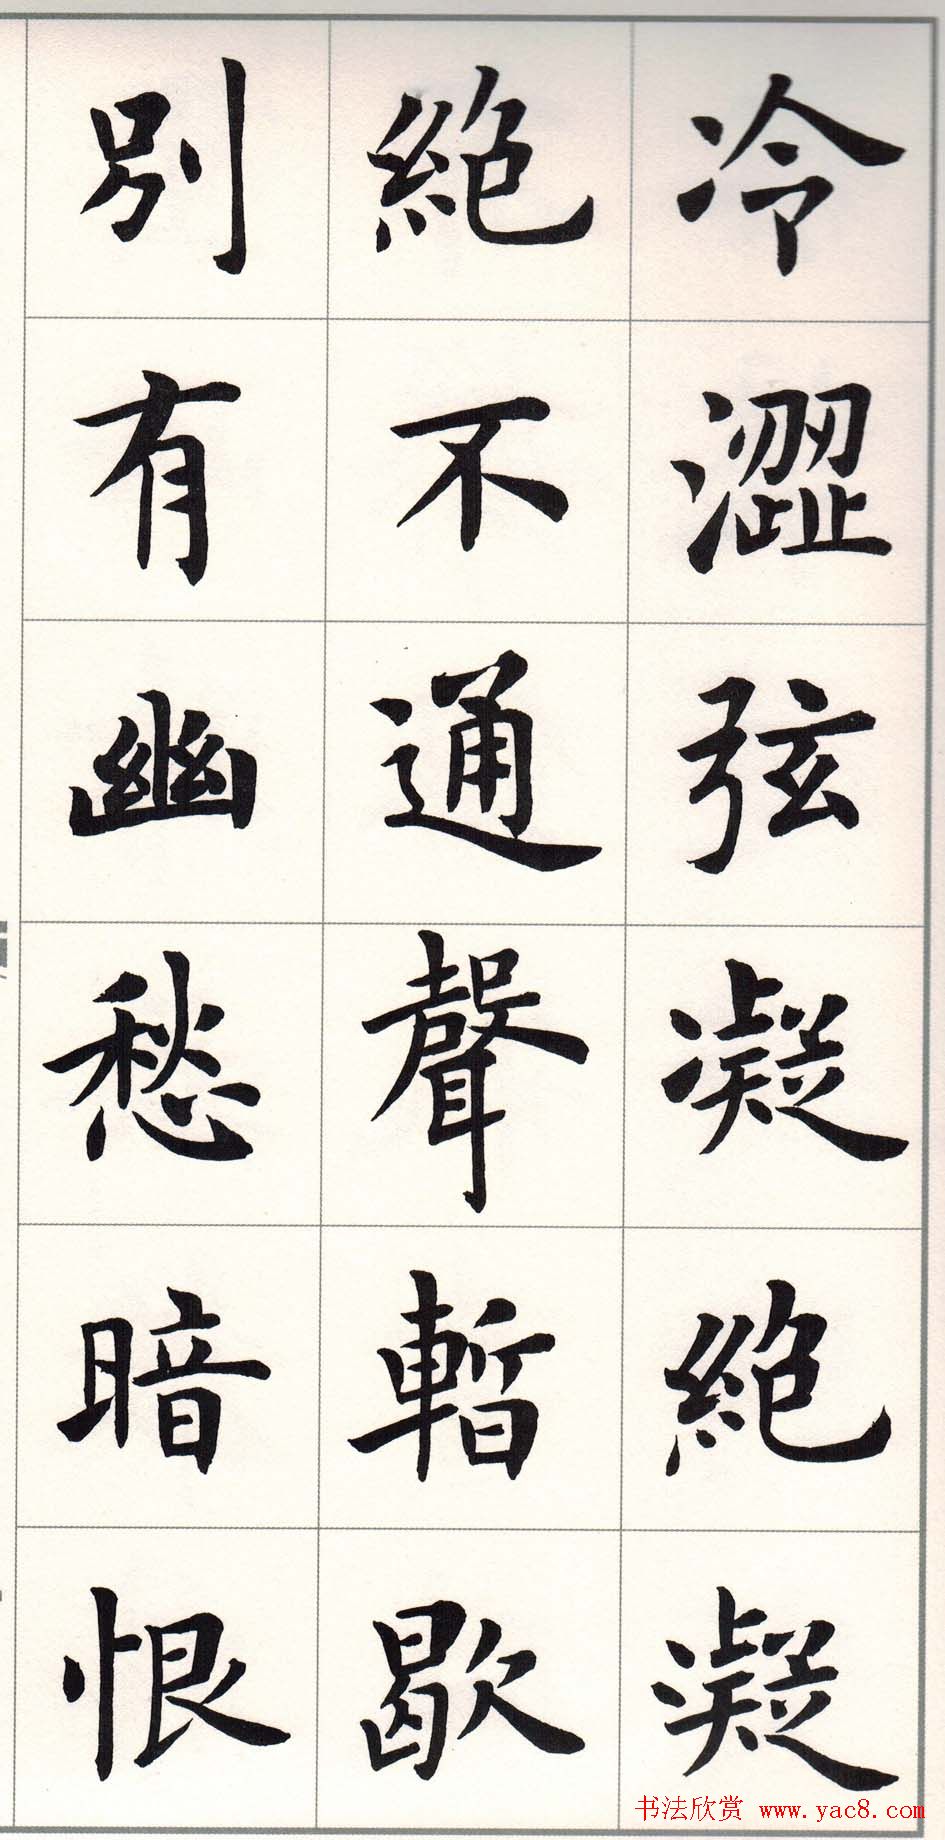 冷澀弦凝絶凝
絶不通聲暫歇
別有幽愁暗恨
书法欣赏 www.yac8.com